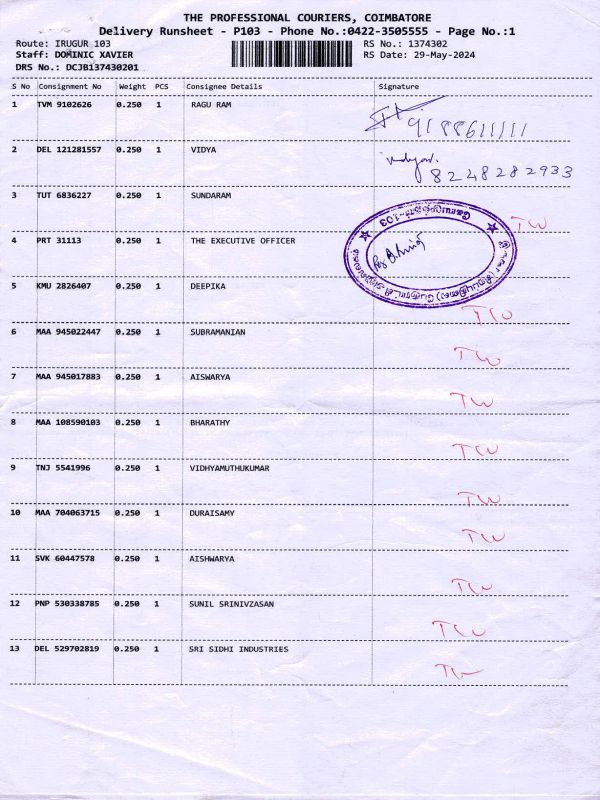 THE PROFESSIONAL COURIERS, COIMBATORE
Delivery Runsheet - P103 - Phone No.:0422-3505555 - Page No.:1
Route: IRUGUR 103 RS No.: 1374302
Staff: DOMINIC XAVIER RS Date: 29-May-2024
DRS No.: DCJB137430201
S No Consignment No Weight PCS Consignee Details Signature
1 TVM 9102626 0.250 1 RAGU RAM
9188611111
2 DEL 121281557 0.250 1 VIDYA
8248282933
3 TUT 6836227 0.250 1 SUNDARAM TW
4 PRT 31113 0.250 1 THE EXECUTIVE OFFICER
5 KMU 2826407 0.250 1 DEEPIKA TW
6 MAA 945022447 0.250 1 SUBRAMANIAN TW
7 MAA 945017883 0.250 1 AISWARYA TW
8 MAA 108590103 0.250 1 BHARATHY TW
9 TNJ 5541996 0.250 1 VIDHYAMUTHUKUMAR TW
10 MAA 704063715 0.250 1 DURAISAMY TW
11 SVK 60447578 0.250 1 AISHWARYA TW
12 PNP 530338785 0.250 1 SUNIL SRINIVZASAN TW
13 DEL 529702819 0.250 1 SRI SIDHI INDUSTRIES TW